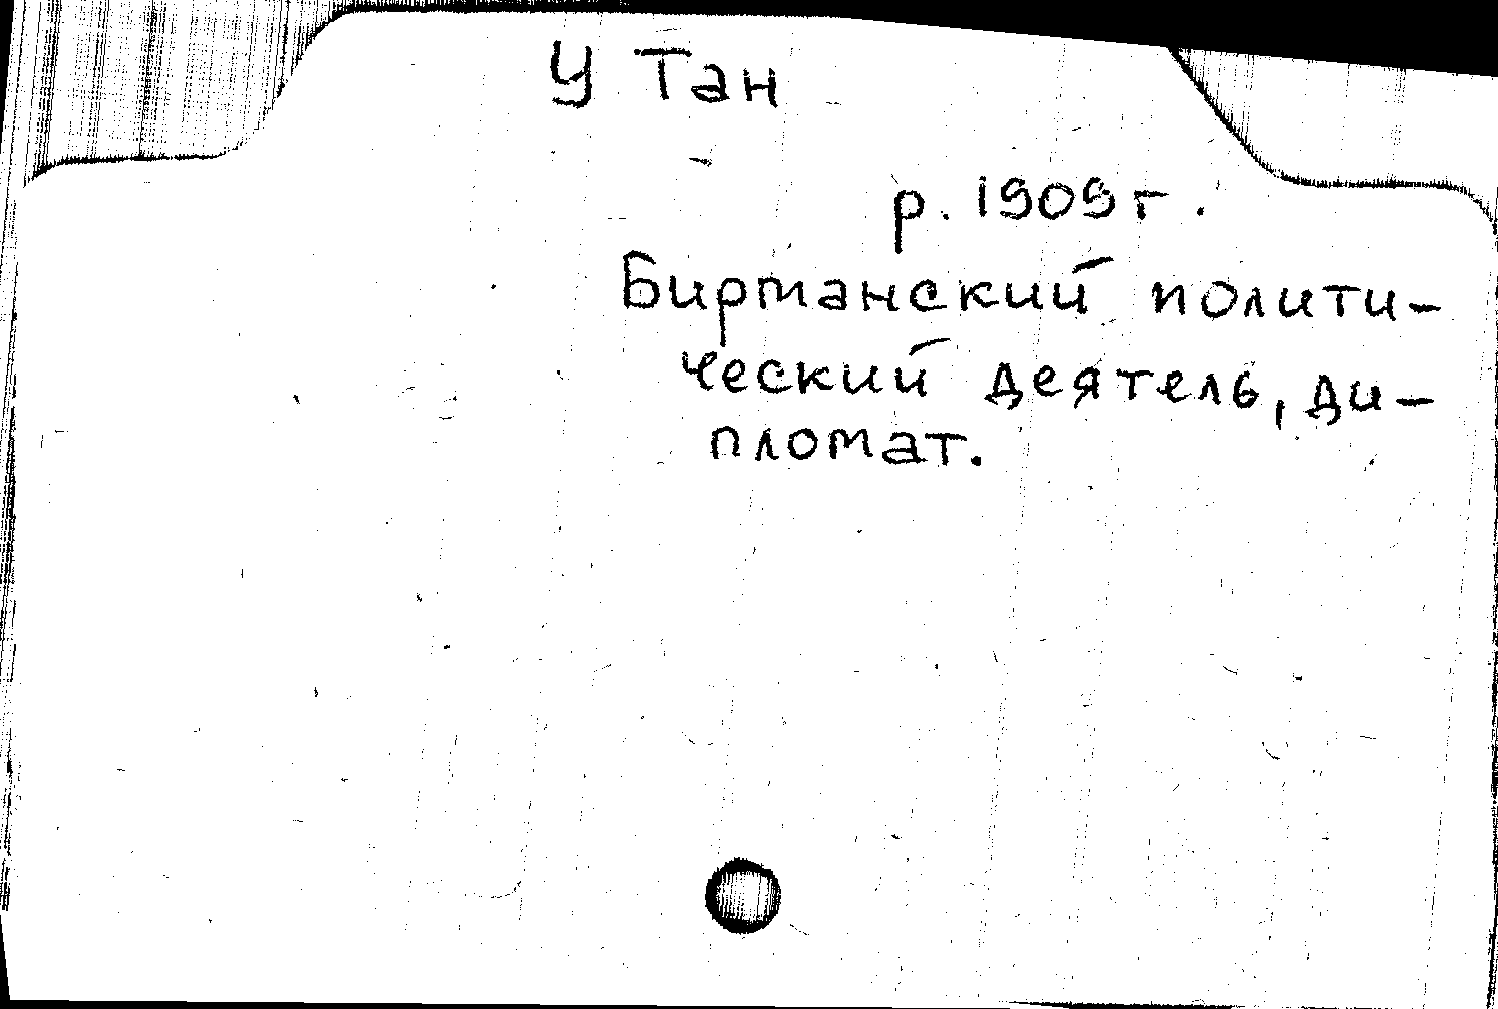 У Тан
р. 1909 г.
Бирманский полити-
ческий деятель, ди-
пломат.